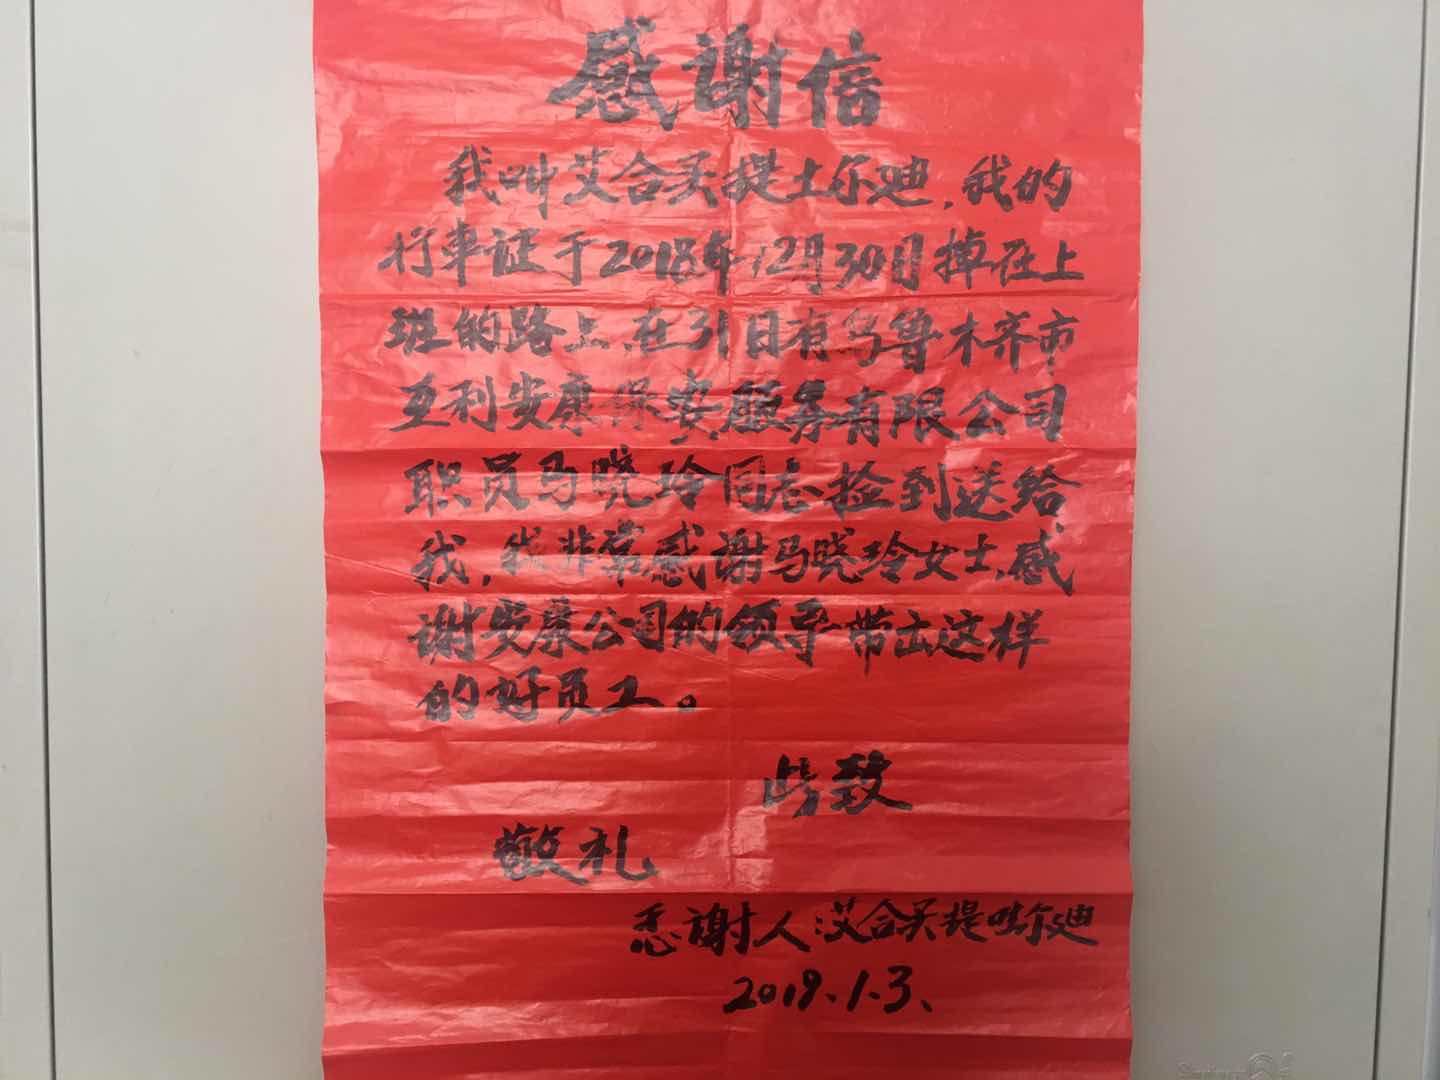 感谢信
我叫艾合买提土尔迪，我的
行车证于2018年12月30日掉在上
班的路上，在31日有乌鲁木齐市
互利安康保安服务有限公司
职员马晓玲同志捡到送给
我，我非常感谢马晓玲女士，感
谢安康公司的领导带出这样
的好员工。
此致
敬礼
感谢人：艾合买提吐尔迪
2019、1、3、